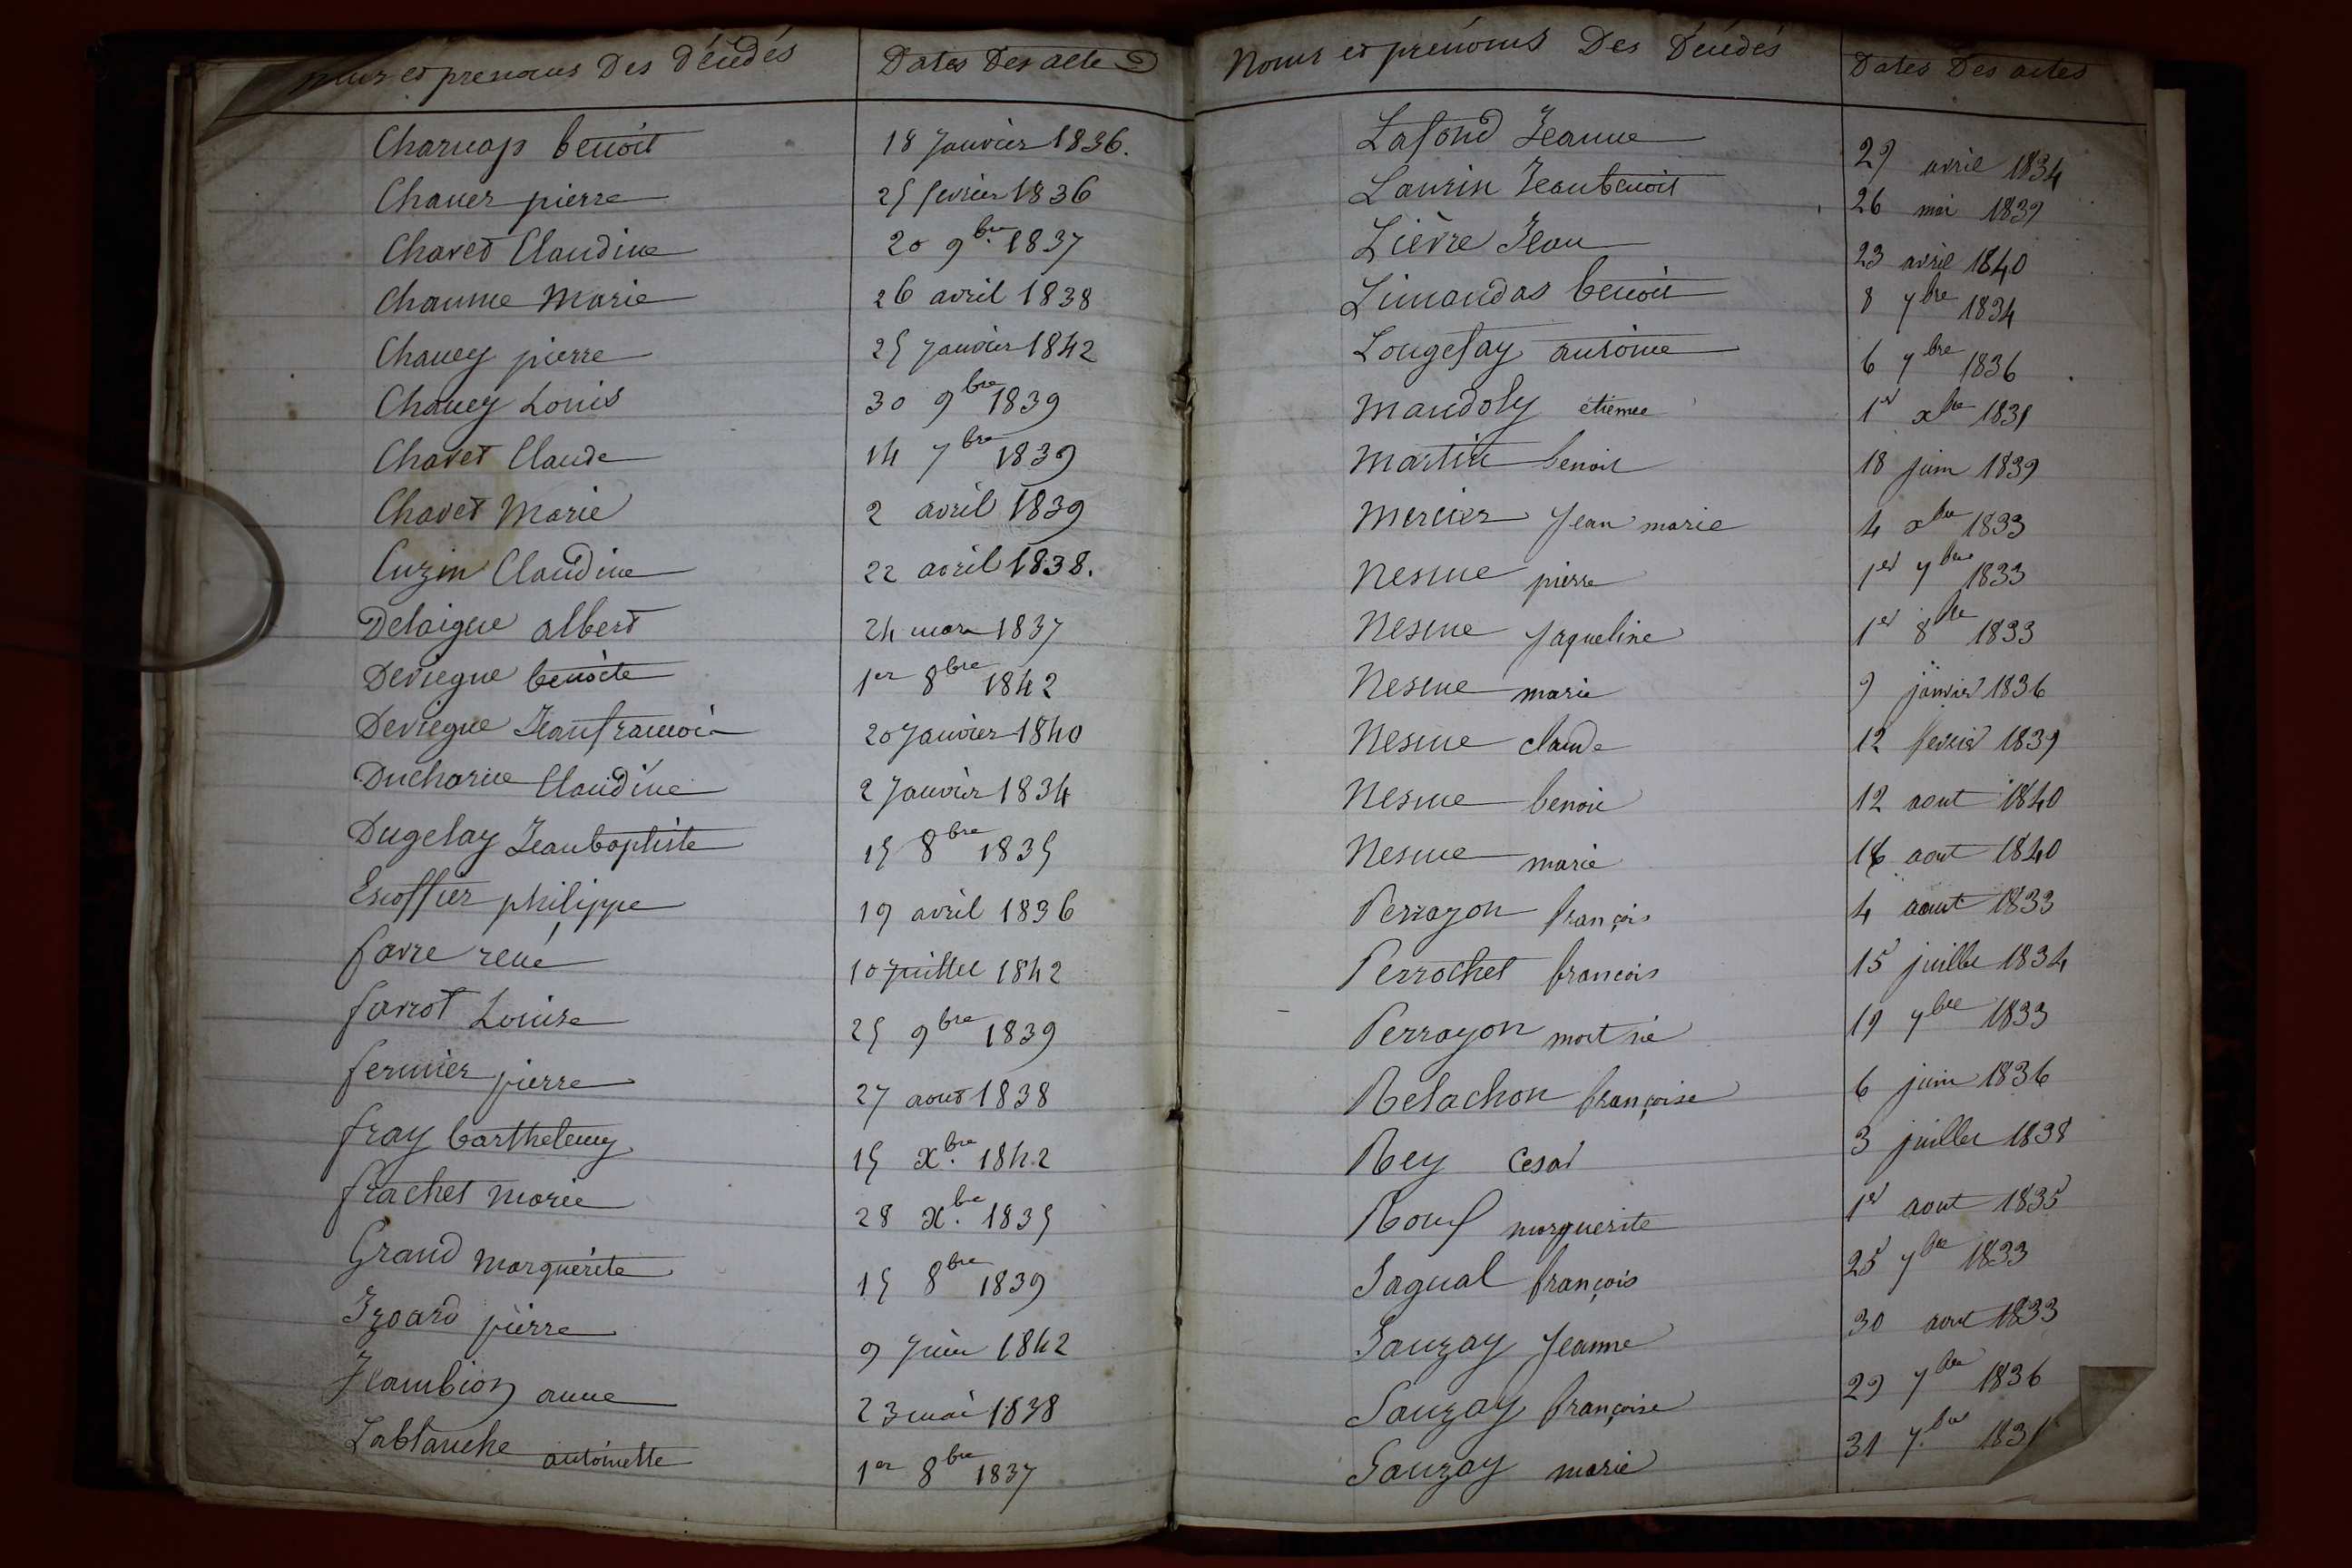 Noms et prenoms Des Décédés Dates Des actes
Charnap benoit 18 Janvier 1836.
Chaner pierre 25 fevrier 1836
Chavet Claudine 20 9bre 1837
Chaume Marie 26 avril 1838
Chaney pierre 25 Janvier 1842
Chaney Louis 30 9bre 1839
Chavet Claude 14 7bre 1839
Chavet Marie 2 avril 1839
Cuzin Claudine 22 avril 1838.
Delaigue albert 24 mars 1837
Deviegue benoite 1er 8bre 1842
Deviegue Jeanfrancois 20 Janvier 1840
Ducharne Claudine 2 Janvier 1834
Dugelay Jeanbaptiste 15 8bre 1835
Escoffier philippe 19 avril 1836
favre rené 10 Juillet 1842
farrot Louise 25 9bre 1839
fermier pierre 27 aout 1838
fray barthelemy 15 Xbre 1842
frachet Marie 28 Xbre 1835
Grand Marguerite 15 8bre 1839
Izoard pierre 9 Juin 1842
Jlambion anne 23 mai 1838
Lablanche antoinette 1er 8bre 1837
Noms et prénoms Des Décédés Dates Des actes
Lafond Jeanne 29 avril 1834
Laurin Jeanbenoit 26 mai 1839
Lièvre Jean 23 avril 1840
Limandas benoit 8 7bre 1834
Longefay antoine 6 7bre 1836
Mandoly etienne 1er xbre 1831
Martin benoit 18 juin 1839
Mercier Jean marie 4 xbre 1833
Nesme pierre 1er 7bre 1833
Nesme Jaqueline 1er 8bre 1833
Nesme marie 9 janvier 1836
Nesme claude 12 fevrier 1839
Nesme benoit 12 aout 1840
Nesme marie 16 aout 1840
Perrayon françois 4 aout 1833
Perrochet francois 15 juillet 1834
Perrayon mort né 19 7bre 1833
Relachon françoise 6 juin 1836
Rey Cesar 3 juillet 1838
Rouf marguerite 1er aout 1835
Sagual françois 25 7bre 1833
Sauzay Jeanne 30 aout 1833
Sauzay françoise 29 7bre 1836
Sauzay marie 31 7bre